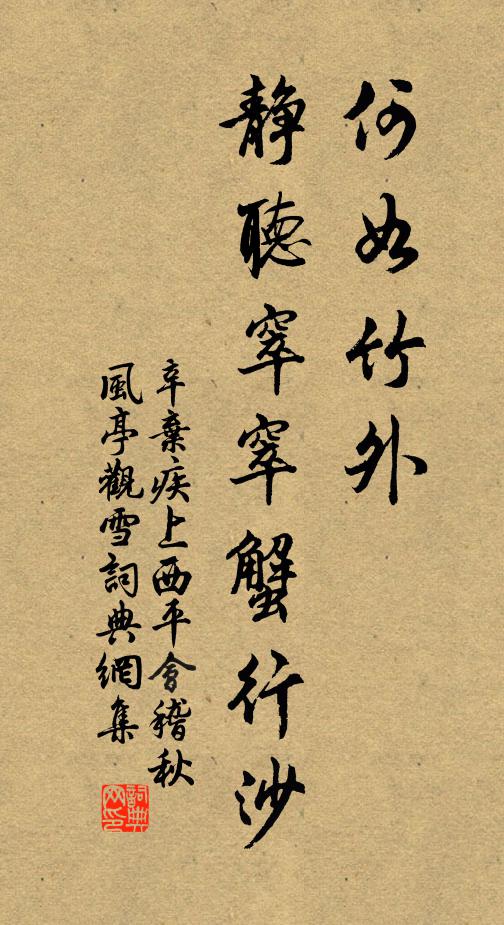 何如竹外
靜聽窣窣蟹行沙
辛棄疾上西平會稽秋
風亭觀雪詞典網集
詞典網印